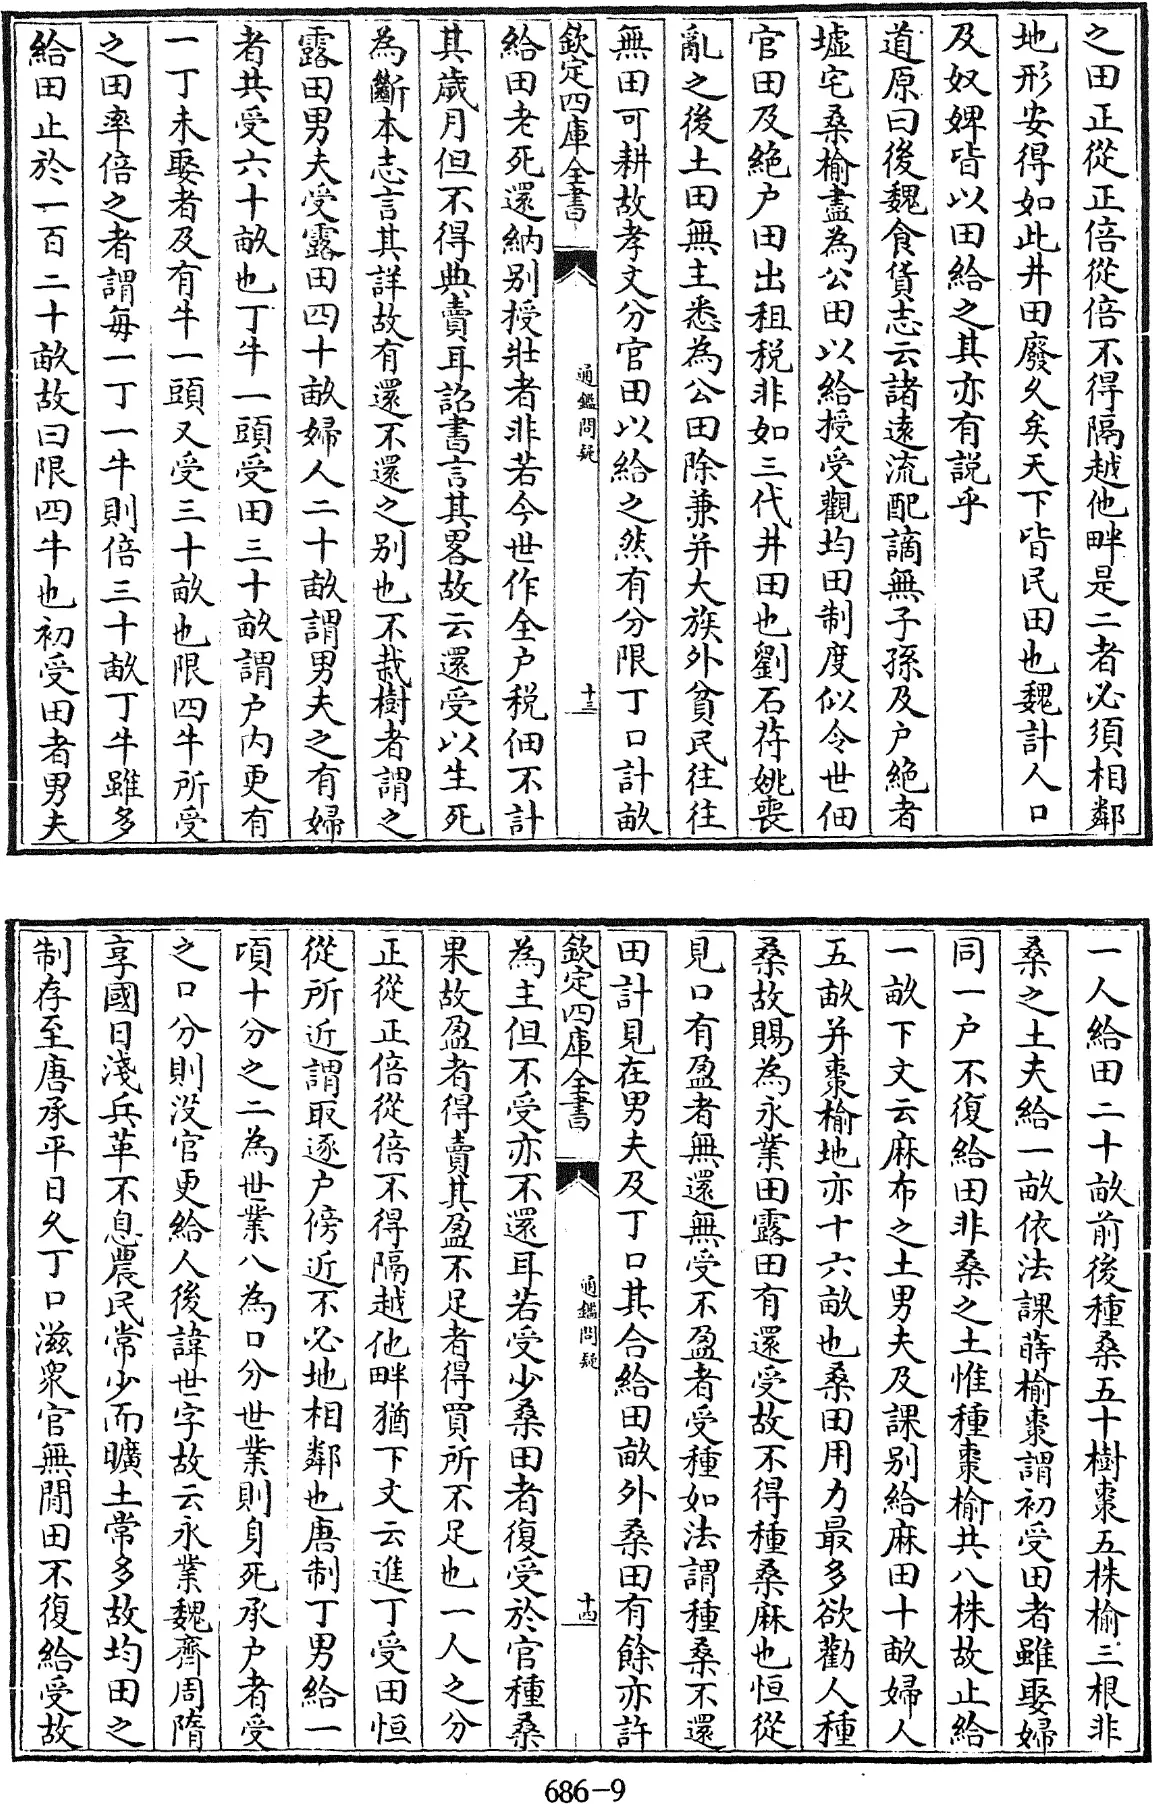 之田正從正倍從倍不得隔越他畔是二者必須相鄰
地形安得如此井田廢乆矣天下皆民田也魏計人口
及奴婢皆以田給之其亦有説乎
道原曰後魏食貨志云諸逺流配謫無子孫及户絶者
墟宅桑榆盡為公田以給授受觀均田制度似令世佃
官田及絶户田出租税非如三代井田也劉石苻姚喪
亂之後土田無主悉為公田除兼并大族外貧民往往
無田可耕故孝文分官田以給之然有分限丁口計畝
欽定四庫全書
通鑑問疑
十三
給田老死還納别授壯者非若今世作全户税佃不計
其歲月但不得典賣耳詔書言其畧故云還受以生死
為斷本志言其詳故有還不還之别也不栽樹者謂之
露田男夫受露田四十畝婦人二十畝謂男夫之有婦
者共受六十畝也丁牛一頭受田三十畝謂户内更有
一丁未娶者及有牛一頭又受三十畝也限四牛所受
之田率倍之者謂每一丁一牛則倍三十畝丁牛雖多
給田止於一百二十畝故曰限四牛也初受田者男夫
一人給田二十畝前後種桑五十樹棗五株榆三根非
桑之土夫給一畝依法課蒔榆棗謂初受田者雖娶婦
同一户不復給田非桑之土惟種棗榆共八株故止給
一畝下文云麻布之土男夫及課别給麻田十畝婦人
五畝并棗榆地亦十六畝也桑田用力最多欲勸人種
桑故賜為永業田露田有還受故不得種桑麻也恒從
見口有盈者無還無受不盈者受種如法謂種桑不還
田計見在男夫及丁口其合給田畝外桑田有餘亦許
欽定四庫全書
通鑑問疑
十四
為主但不受亦不還耳若受少桑田者復受於官種桑
果故盈者得賣其盈不足者得買所不足也一人之分
正從正倍從倍不得隔越他畔猶下文云進丁受田恒
從所近謂取逐户傍近不必地相鄰也唐制丁男給一
頃十分之二為世業八為口分世業則身死承户者受
之口分則没官更給人後諱世字故云永業魏齊周隋
享國日淺兵革不息農民常少而曠土常多故均田之
制存至唐承平日乆丁口滋衆官無閒田不復給受故
686-9